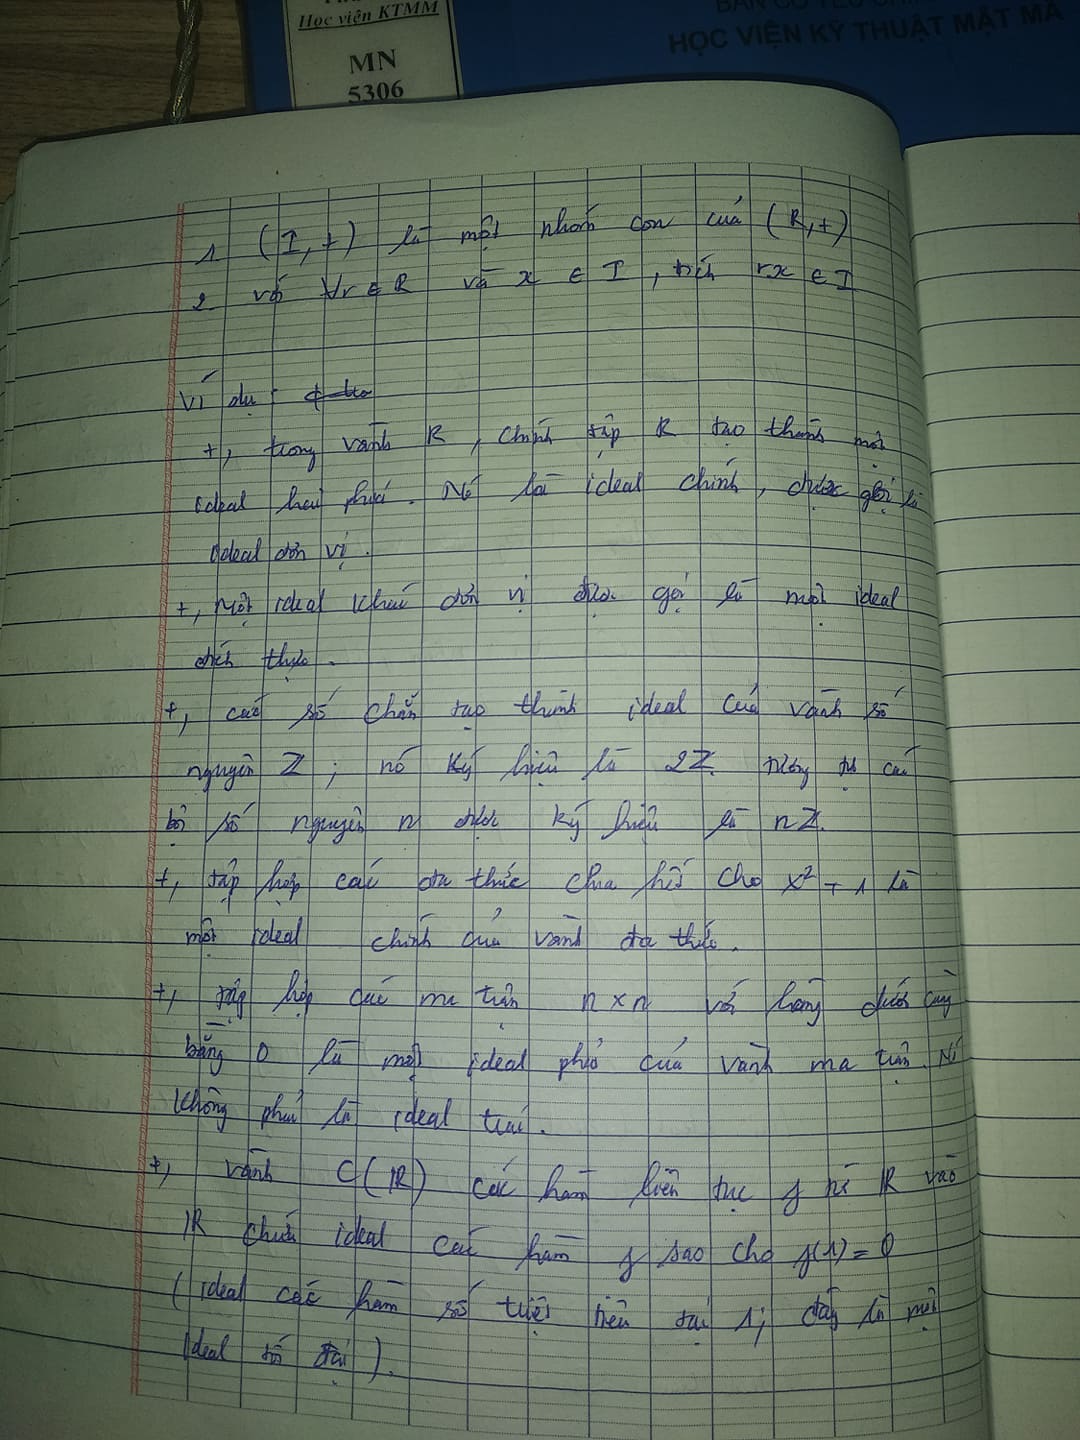 Học viện KTMM
MN
5306
HỌC VIỆN KỸ THUẬT MẬT MÃ
1 (I, +) là một nhóm con của (R, +)
2 với ∀r ∈ R và x ∈ I, tích r.x ∈ I
Ví dụ:
+, trong vành R, chính tập R tạo thành một
ideal hai phía. Nó là ideal chính, được gọi là
ideal đơn vị.
+, Một ideal khác đơn vị được gọi là một ideal
đích thực.
+, các số chẵn tạo thành ideal của vành số
nguyên Z; nó ký hiệu là 2Z. tương tự các
bộ số nguyên n được ký hiệu là nZ.
+, tập hợp các đa thức chia hết cho x² + 1 là
một ideal chính của vành đa thức.
+, tập hợp các ma trận n x n với hàng dưới cùng
bằng 0 là một ideal phải của vành ma trận. Nó
không phải là ideal trái.
+, vành C(R) các hàm liên tục f từ R vào
R chứa ideal các hàm f sao cho f(1) = 0
(ideal các hàm số triệt tiêu tại 1; đây là một
ideal tối đại).